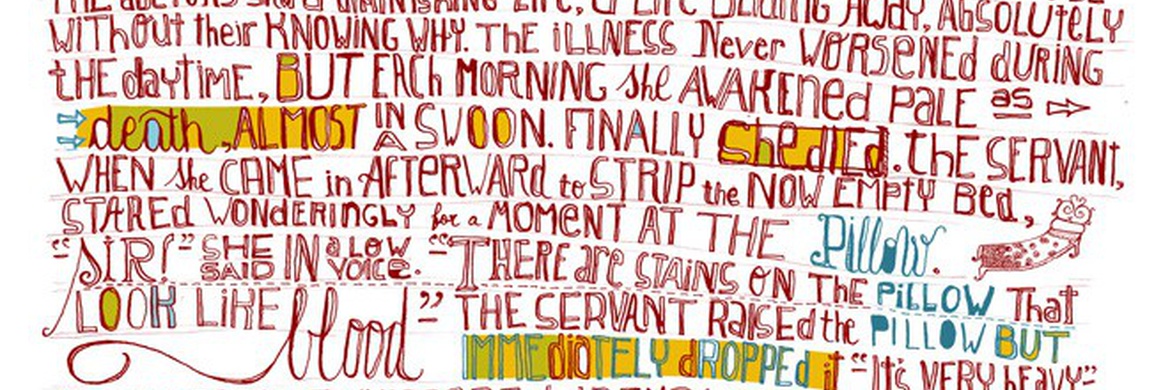 The doctors said diminishing life, a life bleeding away, absolutely
WITHOUT their KNOWING WHY. THE iLLNESS Never WORSENED dURING
tHE daytIME, BUT EACh MORNING she AWAKENed PALE as
death, ALMOST IN A SWOON. FINALLY She dIEd. thE SERVANT,
WHEN she CAME in AFTERWARd to STRIP the NOW EMPTY Bed,
STAREd WONdERINGLY for a MOMENT AT THE Pillow.
"SIR!" SHE SAID IN a LOW VOICE. "THERE are STAiNS ON The PiLLOW That
LOOK LiKE blood" THE SERVANT RaISEd the PILLOW BUT
IMMEdiATELY dROPPEd it "It's VERY heavy"